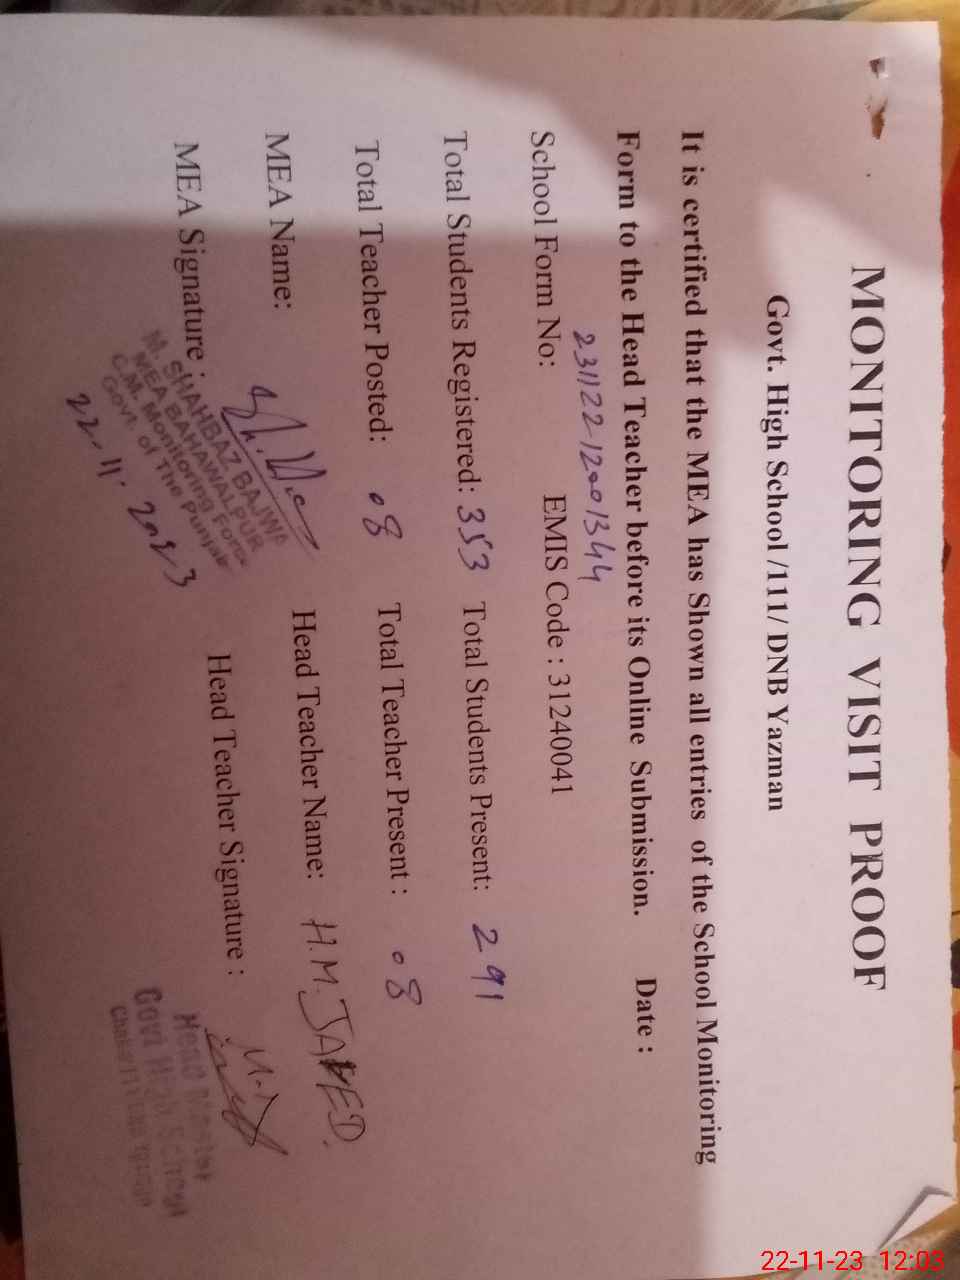 MONITORING VISIT PROOF
Govt. High School /111/ DNB Yazman
It is certified that the MEA has Shown all entries of the School Monitoring
Form to the Head Teacher before its Online Submission. Date :
231122-12001344
School Form No: EMIS Code : 31240041
Total Students Registered: 353 Total Students Present: 291
Total Teacher Posted: 08 Total Teacher Present : 08
MEA Name: Head Teacher Name: H.M. JAVED.
MEA Signature : Head Teacher Signature :
M. SHAHBAZ BAJWA
MEA BAHAWALPUR
C.M. Monitoring Force
Govt. of The Punjab
22.11.2023
Head Master
Govt High School
22-11-23 12:03